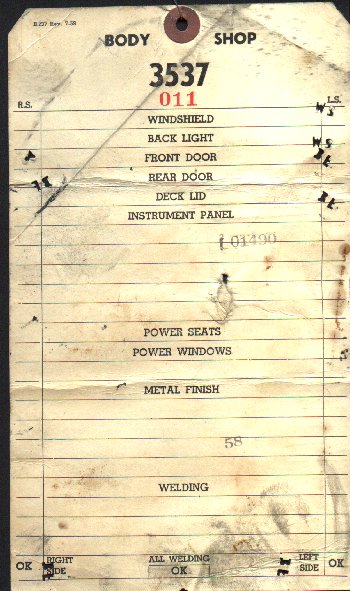 BODY SHOP
3537
011
R.S. L.S.
W S
WINDSHIELD
BACK LIGHT W S
FRONT DOOR
REAR DOOR
DECK LID
INSTRUMENT PANEL
01490
POWER SEATS
POWER WINDOWS
METAL FINISH
58
WELDING
OK RIGHT SIDE ALL WELDING OK LEFT SIDE OK